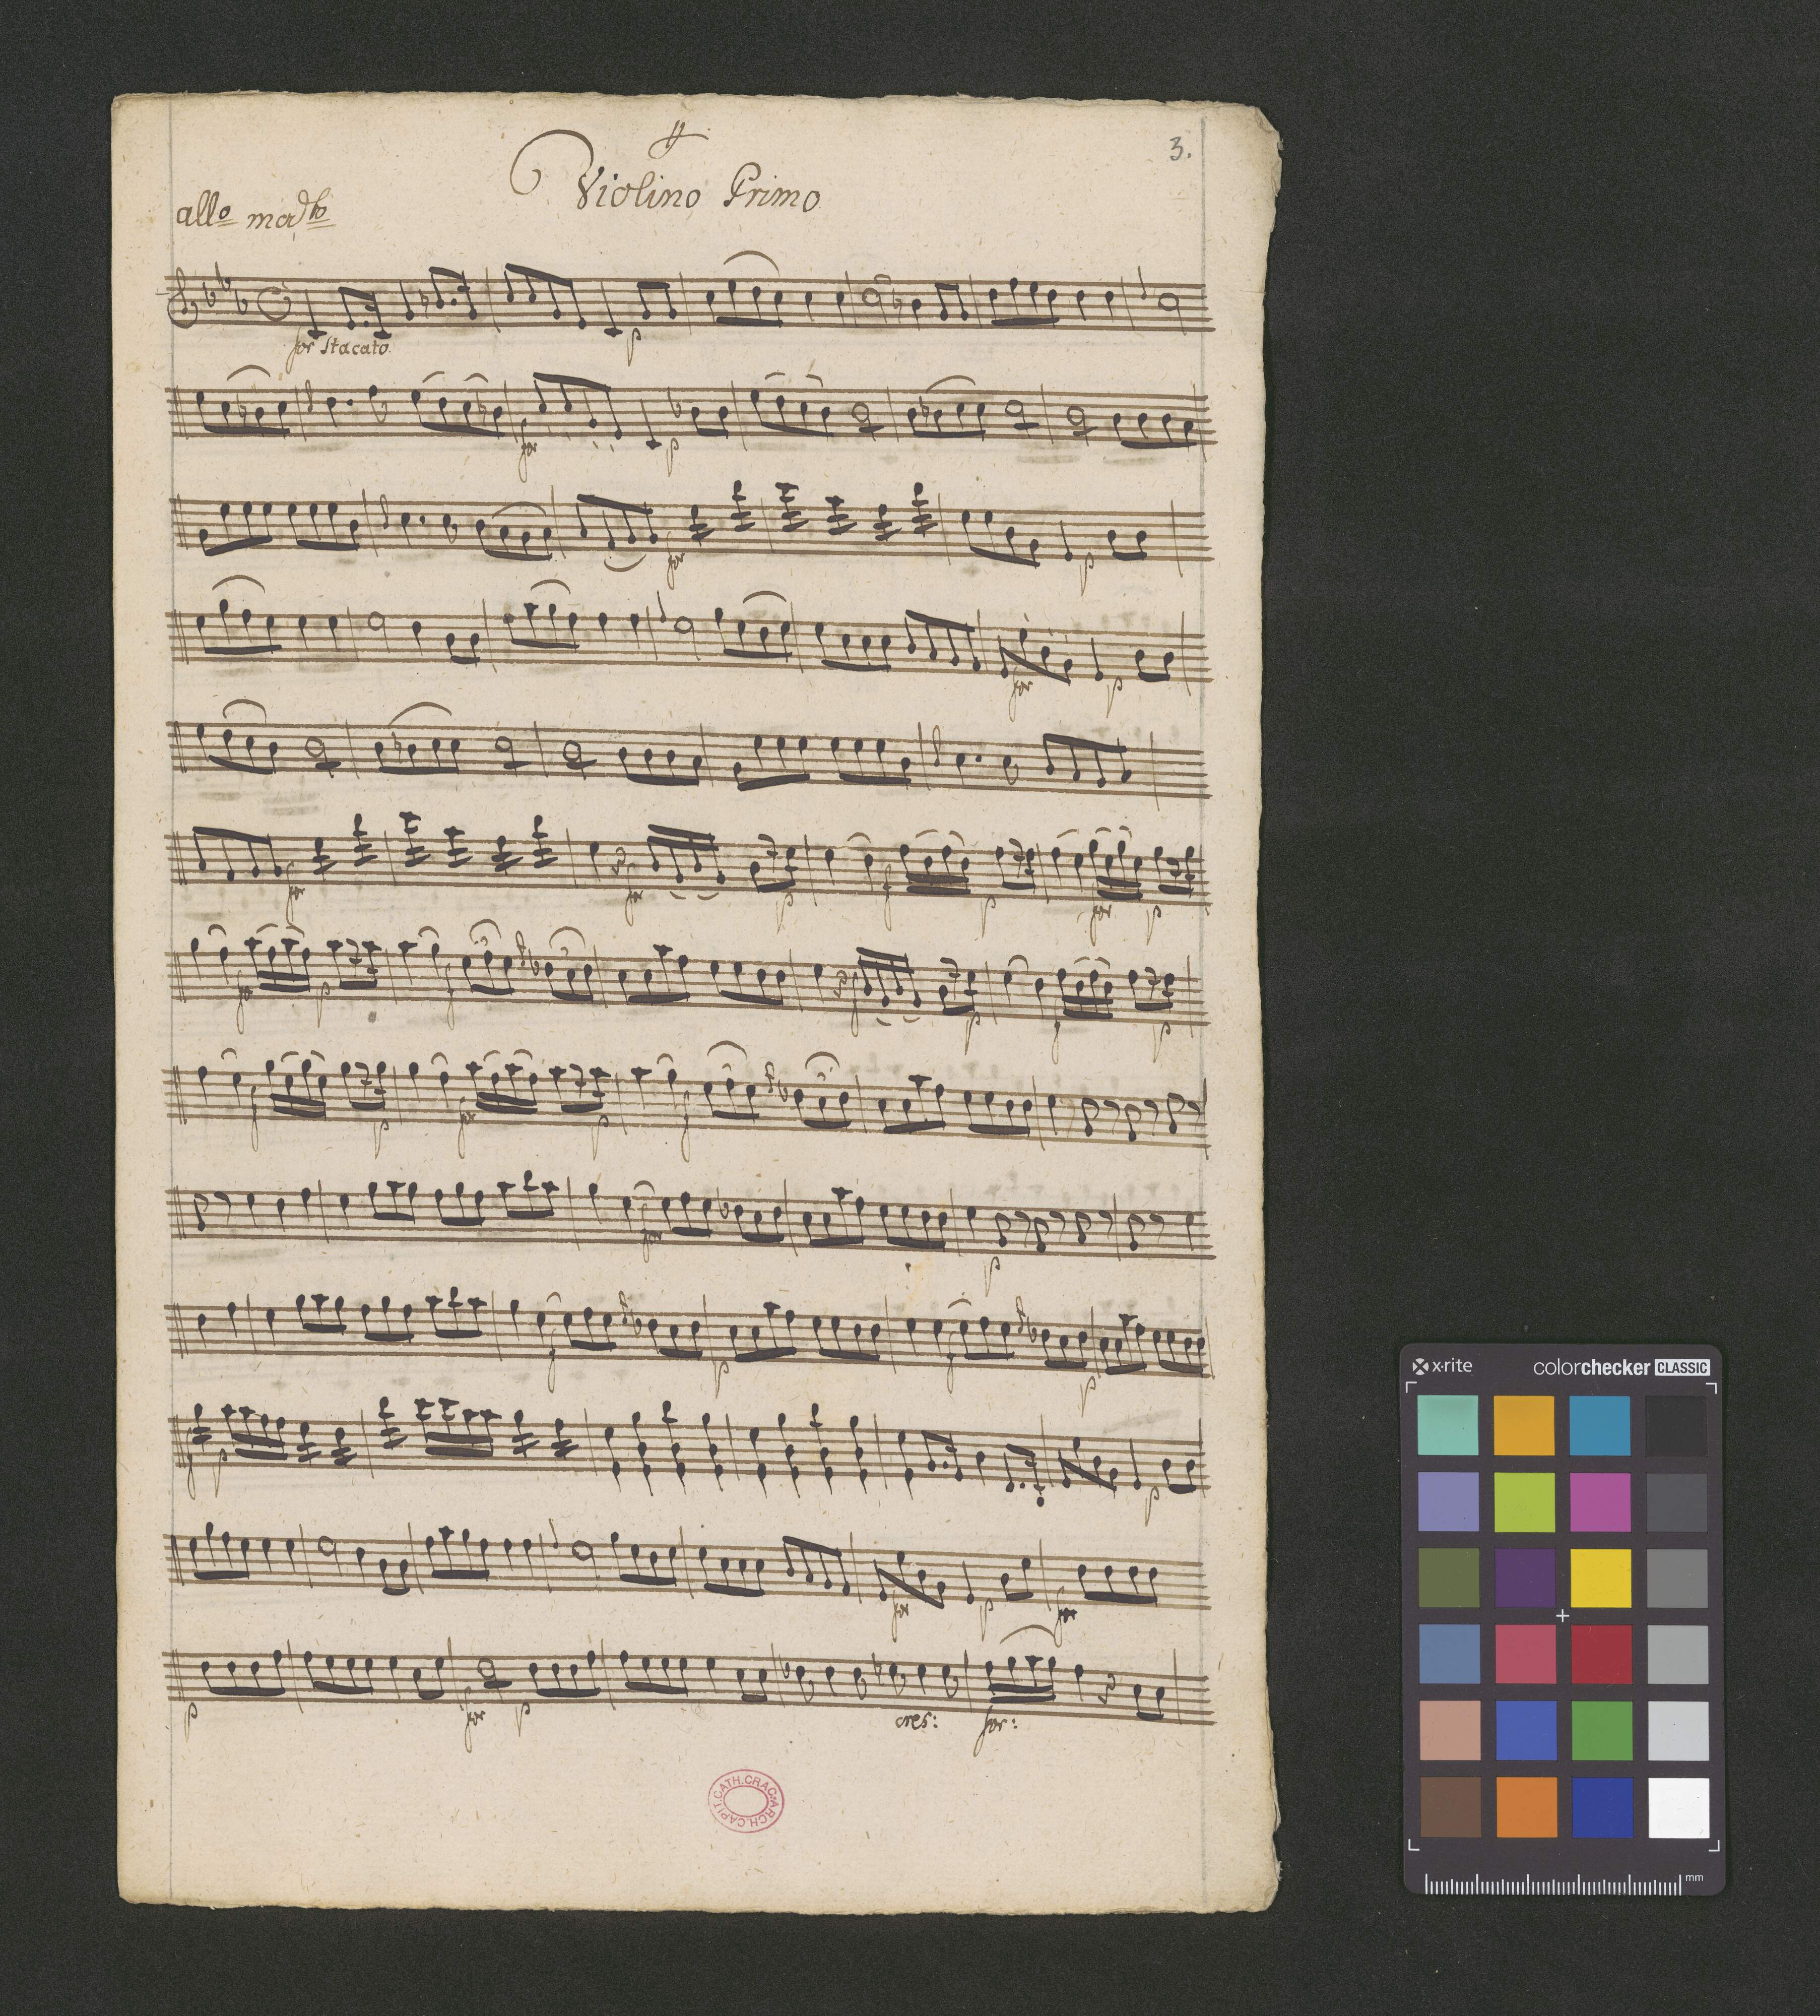 3.
Violino Primo
all:o mod:to
for Stacato p
for p
for p
for p
for for p f p for p
for p f f p f p
f p for p f
for p
f p f p
f p p
for p for
p for p cres: for:
ARCH.CAPIT.CATH.CRAC.
x-rite colorchecker CLASSIC
mm